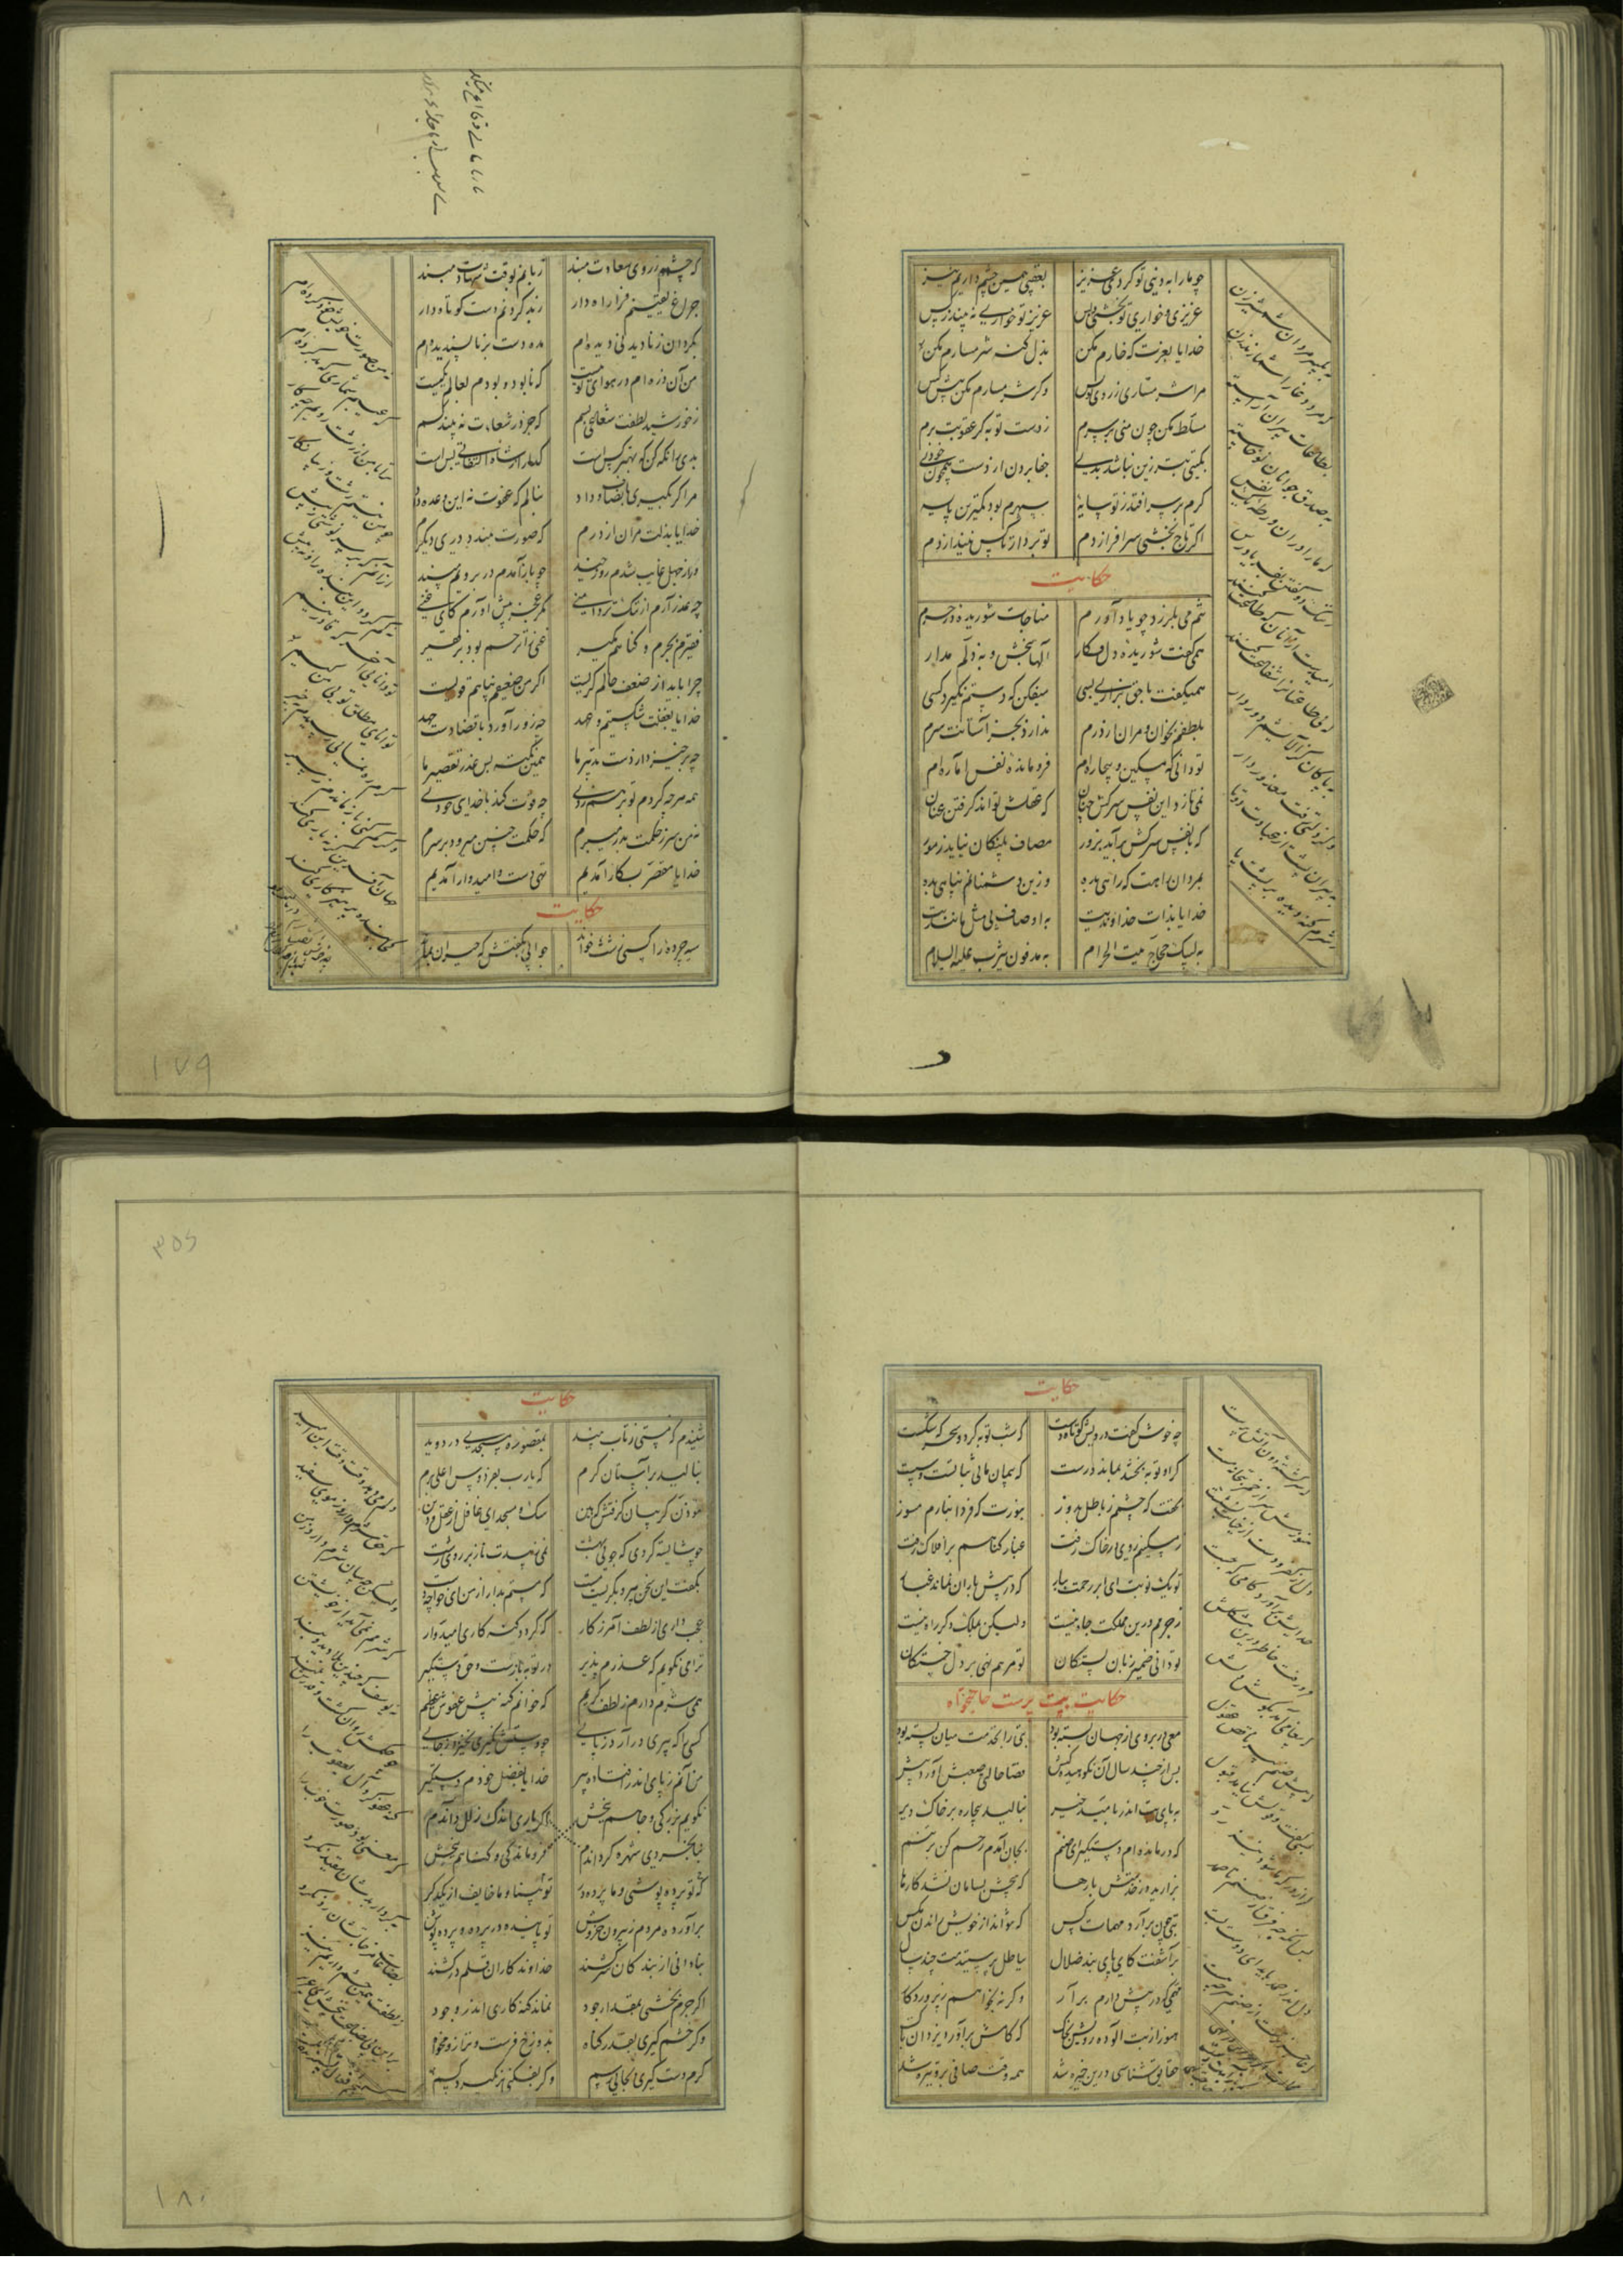 چو ما را به دنیی تو کردی عزیز بعقبی همین چشم داریم نیز
عزیزی و خواری تو بخشی و بس عزیز تو خواری نه بیند ز کس
خدایا بعزت که خارم مکن بذل گنه شرمسارم مکن
مرا شرمساری ز روی تو بس وگر شرمسارم مکن پیش کس
مسلط مکن چون منی بر سرم ز دست تو به گر عقوبت برم
بگیتی بتر زین نباشد بدی جفا بردن از دست همچون خودی
گرم بر سر افتد ز تو سایهٔ سپهرم بود کمترین پایه
اگر تاج بخشی سر افرازدم تو بردار تا کس نیندازدم
حکایت
تنم می بلرزد چو یاد آورم مناجات شوریده در حرم
همی گفت شوریده دل فکار الها ببخش و به ذلم مدار
همیگفت با حق بزاری بسی میفکن که دستم نگیرد کسی
بلطفم بخوان و مران از درم ندارد بجز آستانت سرم
تو دانی که مسکین و بیچاره ام فرو مانده نفس اماره ام
نمی تازد این نفس سرکش چنان که عقلش تواند گرفتن عنان
که با نفس سرکش برآید بزور مصاف پلنگان نیاید ز مور
بمردان راهت که راهی بده وزین دشمنانم پناهی بده
خدایا بذات خداوندیت به اوصاف بی مثل و مانندیت
به لبیک حجاج بیت الحرام به مدفون یثرب علیه السلام
به تکبیر مردان شمشیر زن
که مرد وغا را شمارند زن
بطاعات پیران آراسته
به صدق جوانان نوخاسته
که ما را در آن ورطه یک نفس
ز ننگ دو گفتن بفریاد رس
امیدست از آنان که طاعت کنند
که بی طاعتان را شفاعت کنند
به پاکان کز آلایشم دور دار
وگر زلتی رفت معذور دار
به پیران پشت از عبادت دوتا
ز شرم گنه دیده بر پشت پا
که چشمم ز روی سعادت مبند زبانم بوقت شهادت مبند
چراغ یقینم فرا راه دار ز بد کردنم دست کوتاه دار
بگردان ز نادیدنی دیده ام مده دست بر ناپسندیده ام
من آن ذره ام در هوای تو نیست که نابود و بودم بعالم یکیست
ز خورشید لطفت شعاعی بسم که جز در شعاعت نه بیند کسم
بدی را نگه کن که بهتر کس است گدا را ز شاه التفاتی بس است
مرا گر بگیری بانصاف و داد بنالم که عفوت نه این وعده داد
خدایا بذلت مران از درم که صورت نبندد دری دیگرم
ور از جهل غایب شدم روز چند چو باز آمدم در برویم مبند
چه عذر آرم از ننگ تردامنی مگر عجز پیش آورم کای غنی
فقیرم بجرم و گناهم مگیر غنی را ترحم بود بر فقیر
چرا باید از ضعف حالم گریست اگر من ضعیفم پناهم قویست
خدایا بغفلت شکستیم عهد چه زور آورد با قضا دست جهد
چه برخیزد از دست تدبیر ما همین نکته بس عذر تقصیر ما
همه هرچه کردم تو برهم زدی چه قوت کند با خدای خودی
نه من سر ز حکمت بدر میبرم که حکمت چنین میرود بر سرم
خدایا مقصر بکار آمدیم تهی دست و امیدوار آمدیم
حکایت
سیه چرده را کسی زشت خواند جوابی بگفتش که حیران بماند
نه من صورت خویش خود کرده ام
که عیبم شماری که بد کرده ام
ترا با من ار زشت رویم چه کار
نه آخر منم زشت و زیبا نگار
از آنم که بر سر نوشتی ز پیش
نه کم کردم ای بنده پرور نه بیش
تو دانایی آخر که قادر نیم
توانای مطلق تویی من کیم
گرم ره نمایی رسیدم بخیر
وگر گم کنی باز ماندم ز سیر
جهان آفرین گر نه یاری کند
کجا بنده پرهیزگاری کند
۱۷۹
حکایت
چه خوش گفت درویش کوتاه دست که شب توبه کرد و سحرگه شکست
گر او توبه بخشد بماند درست که پیمان ما بی ثباتست و سست
بحقت که چشمم ز باطل بدوز بنورت که فردا بنارم مسوز
ز مسکینیم روی در خاک رفت غبار گناهم بر افلاک رفت
تو یک نوبت ای ابر رحمت ببار که در پیش باران نماند غبار
ز جرمم درین مملکت جاه نیست ولیکن بملک دگر راه نیست
تو دانی ضمیر زبان بستگان تو مرهم نهی بر دل خستگان
حکایت بت پرست حاجتخواه
مغی در بروی از جهان بسته بود بتی را بخدمت میان بسته بود
پس از چند سال آن نکوهیده کیش قضا حالتی صعبش آورد پیش
به پای بت اندر بامید خیر بنالید بیچاره بر خاک دیر
که درمانده ام دستگیر ای صنم بجان آمدم رحم کن بر تنم
بزارید در خدمتش بارها که هیچش بسامان نشد کارها
بتی چون برآرد مهمات کس که نتواند از خویش راندن مگس
برآشفت کای پای بند ضلال بباطل پرستیدمت چند سال
مهمی که در پیش دارم برآر وگرنه بخواهم ز پروردگار
هنوز از بت آلوده رویش بخاک که کامش برآورد یزدان پاک
حقایق شناسی درین خیره شد همه وقت صافی برو تیره شد
که سرگشته دون آتش پرست
هنوزش سر از خمر بتخانه مست
دل از کفر و دست از خیانت نشست
خدایش برآورد کامی که جست
فرو رفت خاطر درین مشکلش
که پیغامی آمد بگوش دلش
که پیش صنم پیر ناقص عقول
بسی گفت و قولش نیامد قبول
گر از درگه ما شود نیز رد
پس آنگه چه فرق از صنم تا صمد
دل اندر صمد باید ای دوست بست
۳۵۶
حکایت
شنیدم که مستی ز تاب نبیذ بمقصوره مسجدی در دوید
بنالید بر آستان کرم که یارب بفردوس اعلی برم
موذن گریبان گرفتش که هین سگ و مسجد ای غافل از عقل و دین
چه شایسته کردی که جویی بهشت نمی زیبدت ناز بر روی زشت
بگفت این سخن پیر و بگریست مست که مستم بدار از من ای خواجه دست
عجب داری از لطف آمرزگار که گردد گنه کاری امیدوار
ترا می نگویم که عذرم پذیر در توبه بازست و حق دستگیر
همی شرم دارم ز لطف کریم که خوانم گنه پیش عفوش عظیم
کسی را که پیری درآرد ز پای چو دستش نگیری نخیزد ز جای
من آنم ز پای اندر افتاده پیر خدایا بفضل خودم دستگیر
نگویم بزرگی و جاهم ببخش فروماندگی و گناهم ببخش
اگر یاری اندک زلل داندم بنابخردی شهره گرداندم
که تو پرده پوشی و ما پرده در تو بینا و ما خایف از یکدگر
برآورده مردم ز بیرون خروش تو بیننده در پرده و پرده پوش
بنادانی از بندگان سرکشند خداوندگاران قلم درکشند
اگر جرم بخشی بمقدار جود نماند گنه کاری اندر وجود
وگر خشم گیری بقدر گناه بدوزخ فرست و ترازو مخواه
گرم دست گیری بجایی رسم وگر بفکنی بر نگیرد کسم
دلم می دهد وقت وقت این امید
که حق شرم دارد ز موی سفید
عجب دارم ار شرم دارد ز من
که شرمم نمی آید از خویشتن
نه یوسف که چندین بلا دید و بند
چو حکمش روان گشت و قدرش بلند
گنه عفو کرد آل یعقوب را
که معنی بود صورت خوب را
بکردار بدشان مقید نکرد
بضاعات مزجاتشان رد نکرد
ز لطفت همین چشم داریم نیز
برین بی بضاعت ببخش ای عزیز
۱۸۰